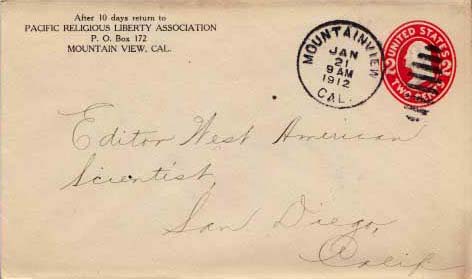 After 10 days return to
PACIFIC RELIGIOUS LIBERTY ASSOCIATION
P. O. Box 172
MOUNTAIN VIEW, CAL.
MOUNTAINVIEW
JAN
21
9 AM
1912
CAL.
UNITED STATES
2 TWO CENTS 2
Editor West American
Scientist,
San Diego,
Calif